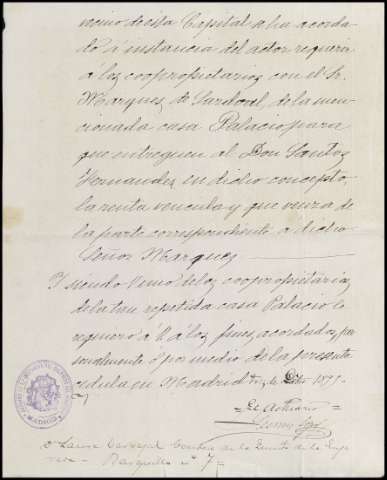 vecino de esta Capital ha acorda-
do á instancia del actor requerir
á los coopropietarios con el Sr.
Marques de Sandoval, de la men-
cionada casa Palacio para
que entreguen al Don Santos
Hernandez en dicho concepto,
la renta vencida y que venza de
la parte correspondiente a dicho
Señor Marques
Y siendo V. uno de los coopropietarios
de la tan repetida casa Palacio le
requiero á V. á los fines acordados, per
sonalmente ó por medio de la presente
cedula en Madrid
El Actuario
de la Quinta de la
Barquillo nº 7
MADRID